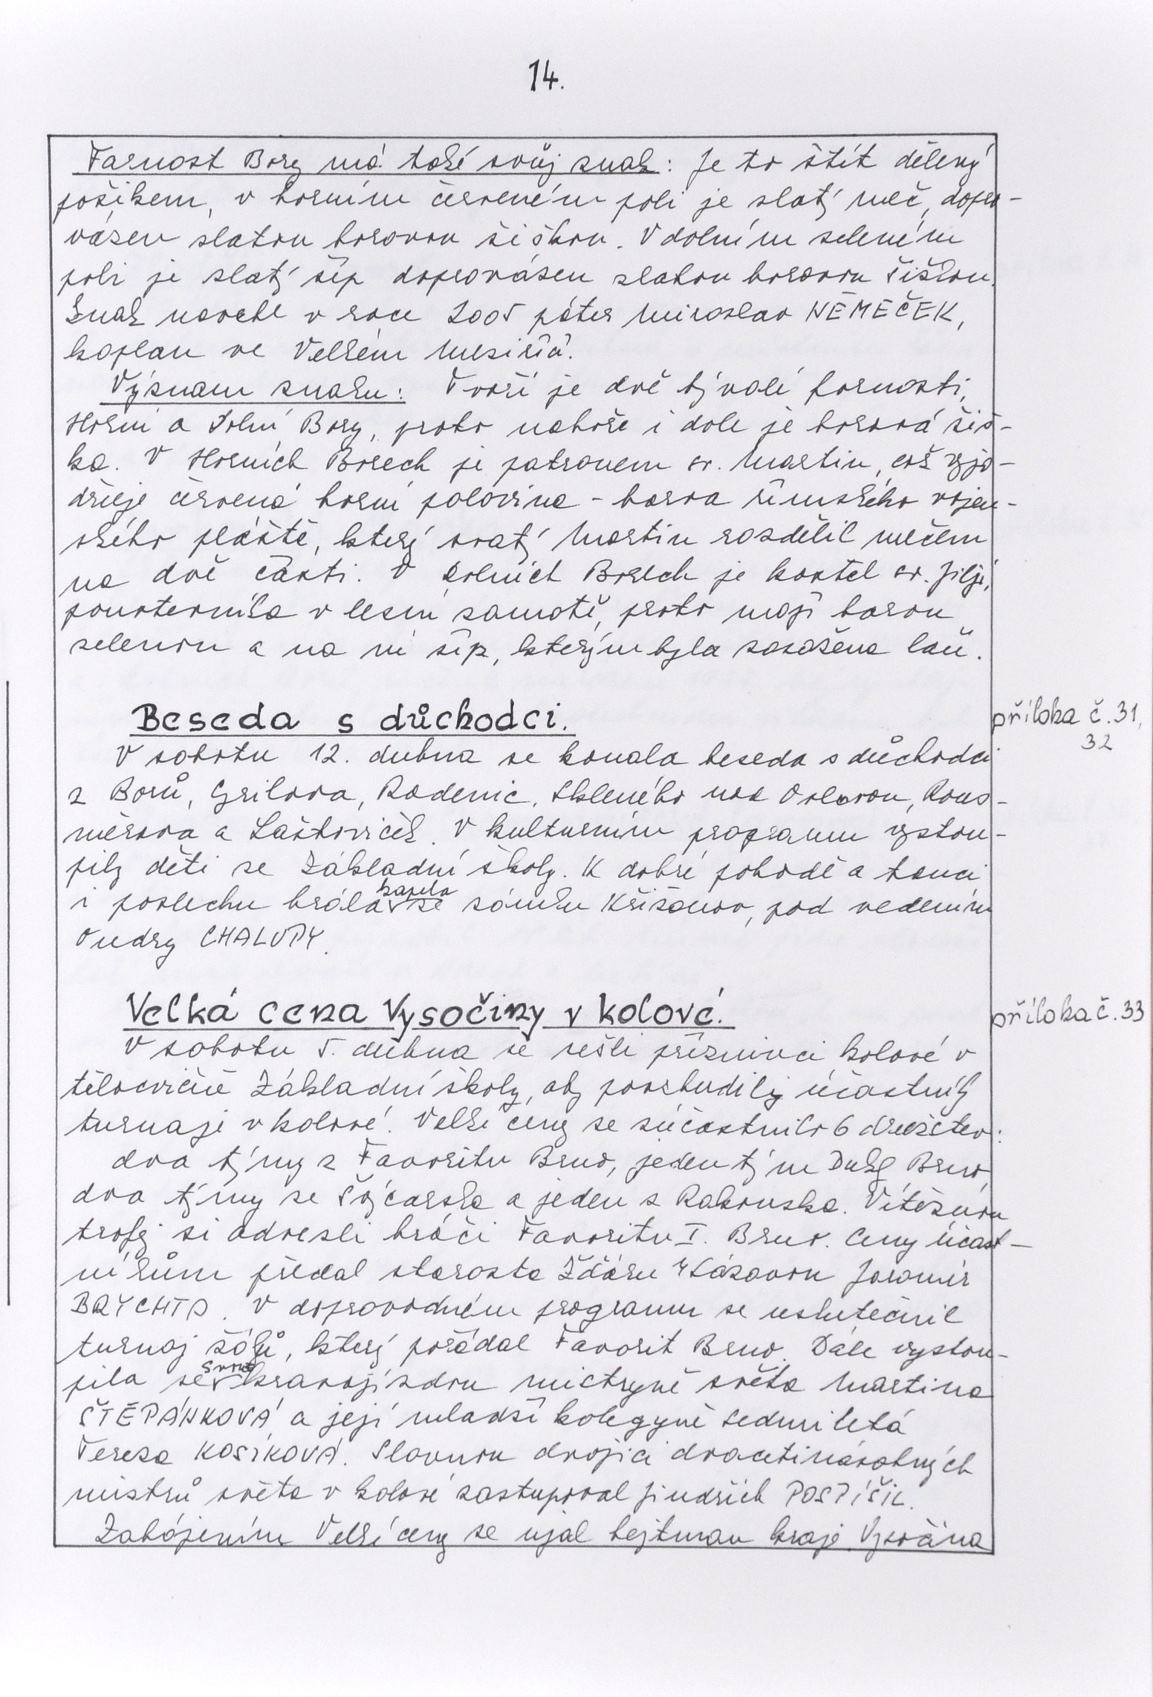 14.
Farnost Bory má také svůj znak: Je to štít dělený
pošikem, v horním červeném poli je zlatý meč, dopro-
vázen zlatou borovou šiškou. V dolním zeleném
poli je zlatý šíp doprovázen zlatou borovou šiškou.
Znak navrhl v roce 2005 páter Miroslav NĚMEČEK,
kaplan ve Velkém Meziříčí.
Význam znaku: Tvoří je dvě bývalé farnosti,
Horní a Dolní Bory, proto nahoře i dole je borová šiš-
ka. V Horních Borech je patronem sv. Martin, což vyja-
dřuje červená horní polovina - barva římského vojen-
ského pláště, který svatý Martin rozdělil mečem
na dvě části. V Dolních Borech je kostel sv. Jiljí,
poustevníka v lesní samotě, proto mají barvu
zelenou a na ní šíp, kterým byla zasažena laň.
Beseda s důchodci.
příloha č. 31,
32
V sobotu 12. dubna se konala beseda s důchodci
z Borů, Cyrilova, Radenic, Skleného nad Oslavou, Rous-
měrova a Laštoviček. V kulturním programu vystou-
pily děti ze Základní školy. K dobré pohodě a tanci
i poslechu hrála kapela ze zámku Křižanov, pod vedením
Ondry CHALUPY.
Velká cena Vysočiny v kolové.
příloha č. 33
V sobotu 5. dubna se sešli příznivci kolové v
tělocvičně Základní školy, aby povzbudily účastníky
turnaje v kolové. Velké ceny se zúčastnilo 6 družstev:
dva týmy z Favoritu Brno, jeden tým Dukly Brno,
dva týmy ze Švýcarska a jeden z Rakouska. Vítěznou
trofej si odvezli hráči Favoritu I. Brno. Ceny účast-
níkům předal starosta Žďáru n/Sázavou Jaromír
BRYCHTA. V doprovodném programu se uskutečnil
turnaj žáků, který pořádal Favorit Brno. Dále vystou-
pila se svou krasojízdou mistryně světa Martina
ŠTĚPÁNKOVÁ a její mladší kolegyně sedmiletá
Tereza KOSÍKOVÁ. Slavnou dvojici dvacetinásobných
mistrů světa v kolové zastupoval Jindřich POSPÍŠIL.
Zahájením Velké ceny se ujal hejtman kraje Vysočina